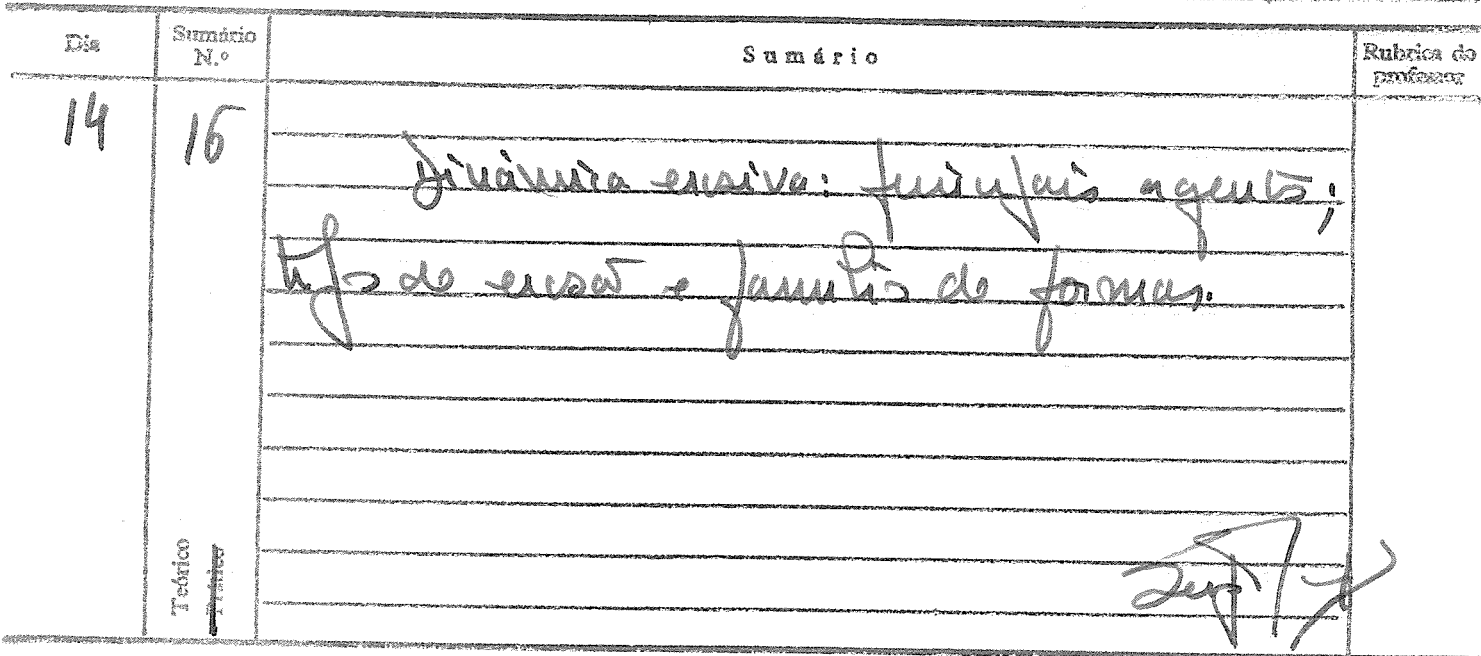 Dia
Sumário N.º
Sumário
Rubrica do professor
14
16
Dinâmica erosiva: principais agentes;
tipo de erosão e família de formas.
Teórico
Prático